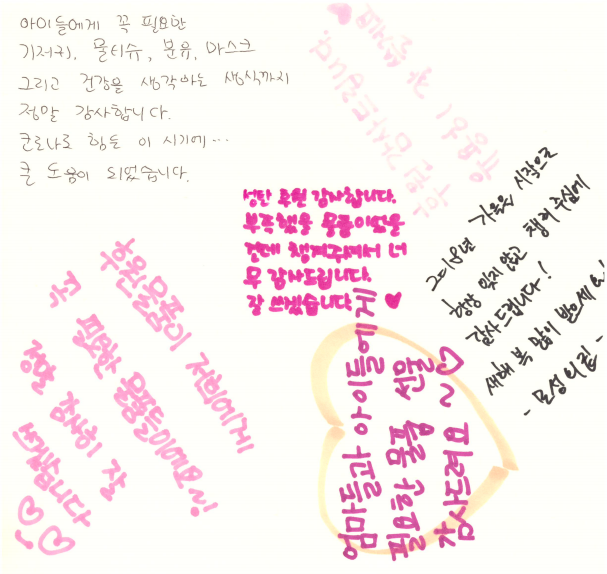 아이들에게 꼭 필요한
기저귀, 물티슈, 분유, 마스크
그리고 건강을 생각하는 생식까지
정말 감사합니다.
코로나로 힘든 이 시기에…
큰 도움이 되었습니다.
성탄 후원 감사합니다.
부족했을 물품이었을
건데 챙겨주셔서 너
무 감사드립니다.
잘 쓰겠습니다 ♥
2018년 가을을 시작으로
항상 잊지 않고 챙겨 주심에
감사드립니다!
새해 복 많이 받으세요!
- 모성의집 -
후원물품이 저희에게
꼭 필요한 물품들이에요~!
정말 감사히 잘
쓰겠습니다
엄마들과 아이들에게
필요한 물품 선물
감사드려요 ~♡